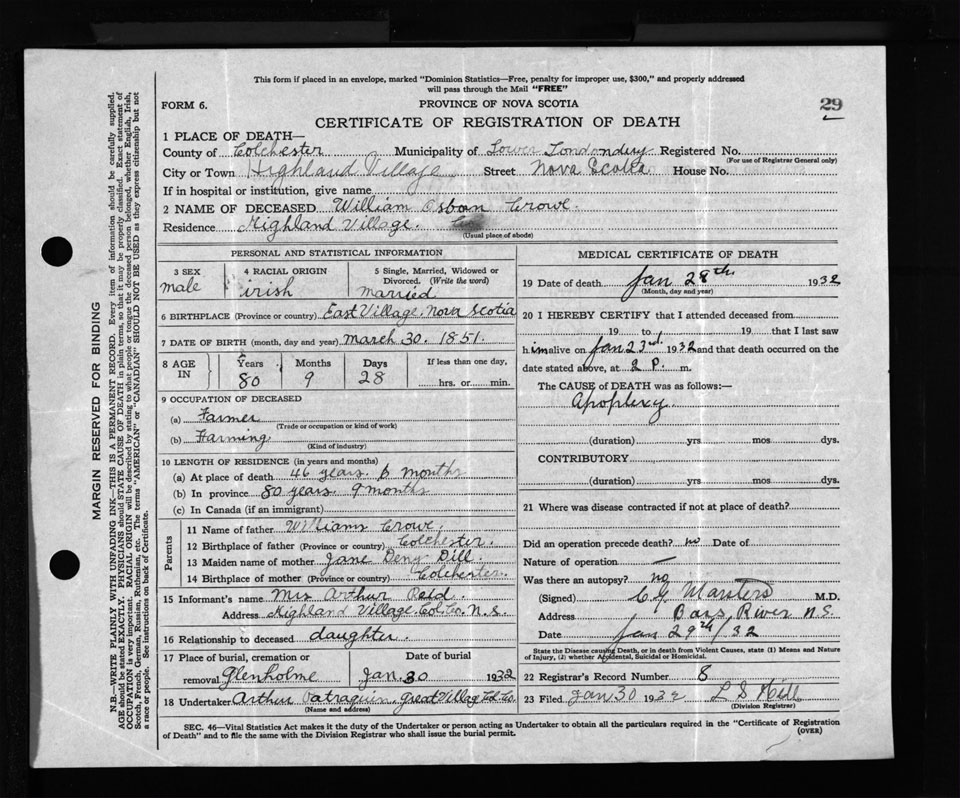 This form if placed in an envelope, marked "Dominion Statistics—Free, penalty for improper use, $300," and properly addressed
will pass through the Mail "FREE"
FORM 6.
PROVINCE OF NOVA SCOTIA
29
CERTIFICATE OF REGISTRATION OF DEATH
1 PLACE OF DEATH—
County of Colchester Municipality of Lower Londondery Registered No.
(For use of Registrar General only)
City or Town Highland Village Street Nova Scotia House No.
If in hospital or institution, give name
2 NAME OF DECEASED William Osborn Crowe.
Residence Highland Village.
(Usual place of abode)
PERSONAL AND STATISTICAL INFORMATION
3 SEX 4 RACIAL ORIGIN 5 Single, Married, Widowed or
Divorced. (Write the word)
male irish married
6 BIRTHPLACE (Province or country) East Village, Nova Scotia
7 DATE OF BIRTH (month, day and year) March 30. 1851.
8 AGE IN Years Months Days If less than one day,
80 9 28 hrs. or min.
9 OCCUPATION OF DECEASED
(a) Farmer
(Trade or occupation or kind of work)
(b) Farming
(Kind of industry)
10 LENGTH OF RESIDENCE (in years and months)
(a) At place of death 46 years. months
(b) In province 80 years 9 months
(c) In Canada (if an immigrant)
Parents
11 Name of father William Crowe.
12 Birthplace of father (Province or country) Colchester.
13 Maiden name of mother Jane Dill.
14 Birthplace of mother (Province or country) Colchester.
15 Informant's name Mrs Arthur Reid
Address Highland Village Col. Co. N.S.
16 Relationship to deceased daughter.
17 Place of burial, cremation or Date of burial
removal Glenholme Jan. 30 1932
18 Undertaker Arthur Great Village Col. Co.
(Name and address)
MEDICAL CERTIFICATE OF DEATH
19 Date of death Jan 28th 1932
(Month, day and year)
20 I HEREBY CERTIFY that I attended deceased from
19 to 19 that I last saw
him alive on Jan 23rd. 1932 and that death occurred on the
date stated above, at 2 P. m.
The CAUSE of DEATH was as follows:—
Apoplexy.
(duration) yrs mos dys.
CONTRIBUTORY
(duration) yrs mos dys.
21 Where was disease contracted if not at place of death?
Did an operation precede death? no Date of
Nature of operation —
Was there an autopsy? no
(Signed) Marsters M.D.
Address Bass River N.S.
Date Jan 29th/32
State the Disease causing Death, or in death from Violent Causes, state (1) Means and Nature
of Injury, (2) whether Accidental, Suicidal or Homicidal.
22 Registrar's Record Number 8
23 Filed Jan 30 1932 L S Hill
(Division Registrar)
SEC. 46—Vital Statistics Act makes it the duty of the Undertaker or person acting as Undertaker to obtain all the particulars required in the "Certificate of Registration
of Death" and to file the same with the Division Registrar who shall issue the burial permit.
(OVER)
MARGIN RESERVED FOR BINDING
N.B.—WRITE PLAINLY WITH UNFADING INK—THIS IS A PERMANENT RECORD. Every item of information should be carefully supplied.
AGE should be stated EXACTLY. PHYSICIANS should STATE CAUSE OF DEATH in plain terms, so that it may be properly classified. Exact statement of
OCCUPATION is very important. RACIAL ORIGIN will be described by stating to what people or tongue the deceased person belonged, whether English, Irish,
Scotch, French, German, Russian, Ruthenian, etc. The terms "AMERICAN" or "CANADIAN" SHOULD NOT BE USED as they express citizenship but not
a race or people. See instructions on back of Certificate.